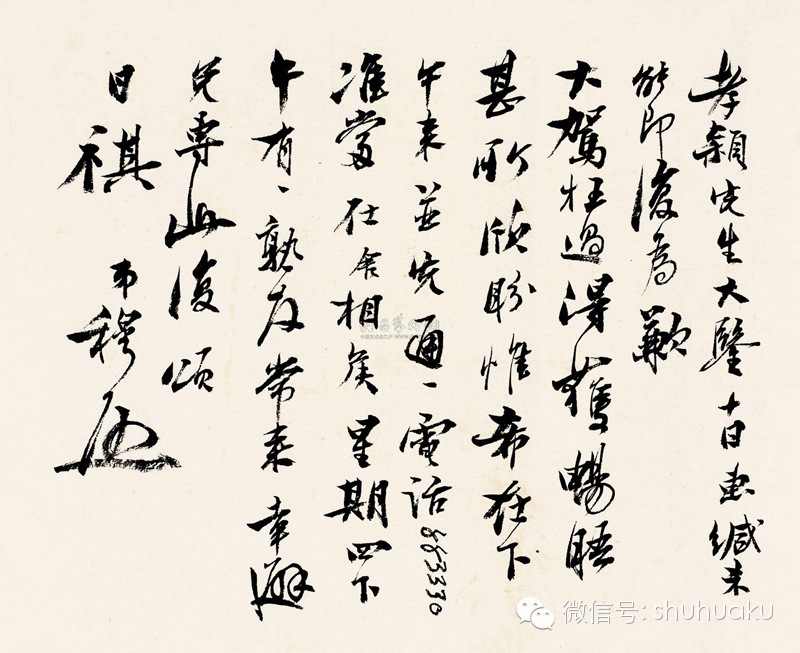 孝頴先生大鑒十日惠緘未
能即復為歉
大駕枉過得獲暢晤
甚所欣盼惟希在下
午来並先通一電話883330
准當在舍相矦星期四下
午有一熟友常来幸避
免専此復頌
日祺 弟穆
微信号: shuhuaku